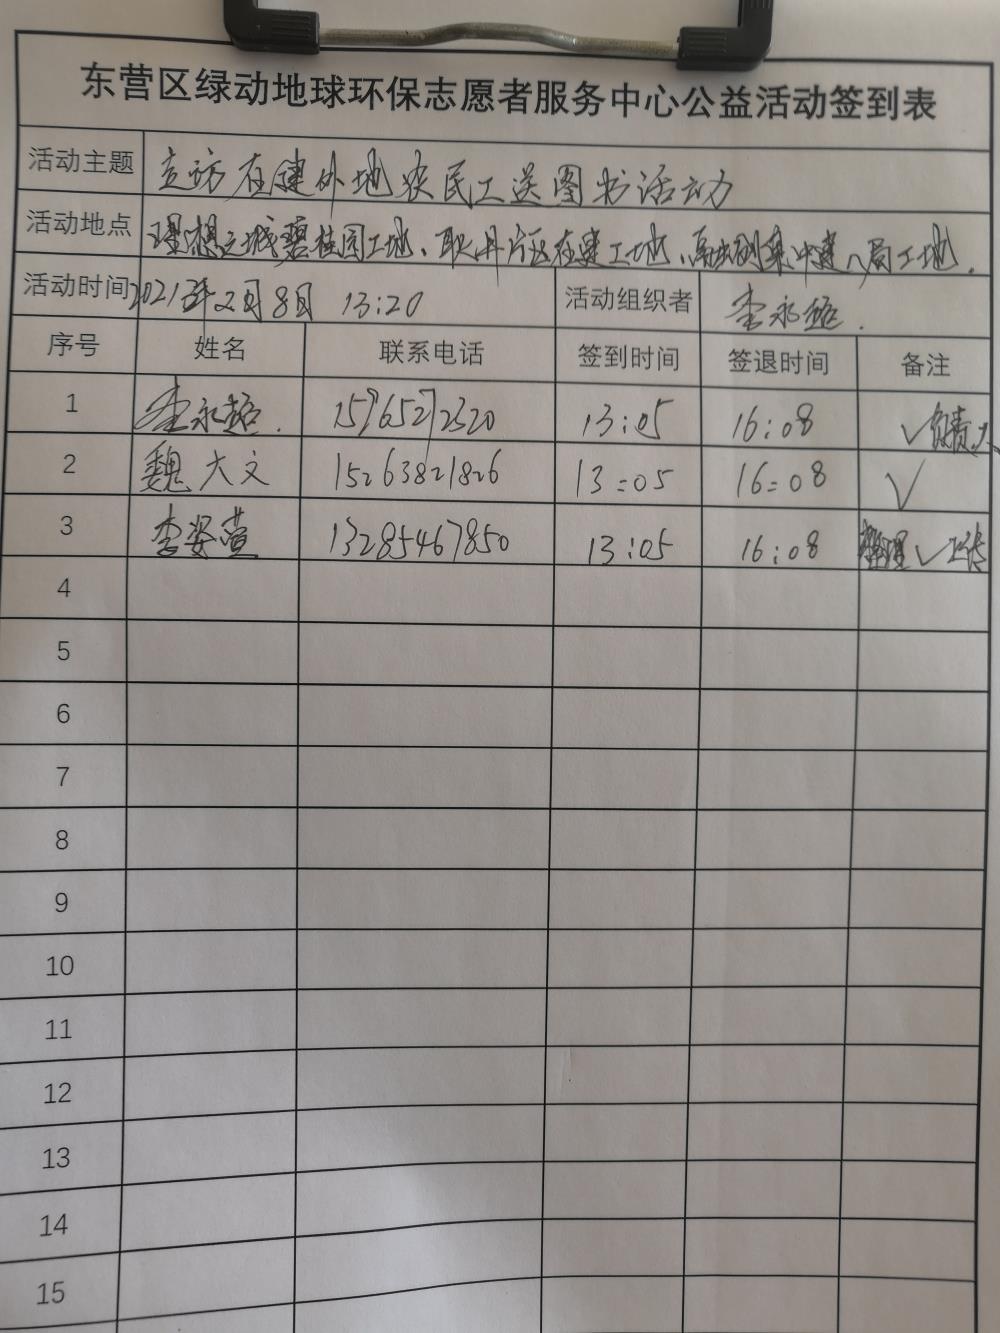 东营区绿动地球环保志愿者服务中心公益活动签到表
活动主题 走访在建外地农民工送图书活动
活动地点 理想之城碧桂园工地、片区在建工地、中建八局工地.
活动时间 2021年2月8日 13:20 活动组织者 李永超.
序号 姓名 联系电话 签到时间 签退时间 备注
1 李永超. 15965272320 13:05 16:08 ✓负责人
2 魏大文 15263821826 13:05 16:08 ✓
3 李姿萱 13285467850 13:05 16:08 整理✓
4
5
6
7
8
9
10
11
12
13
14
15